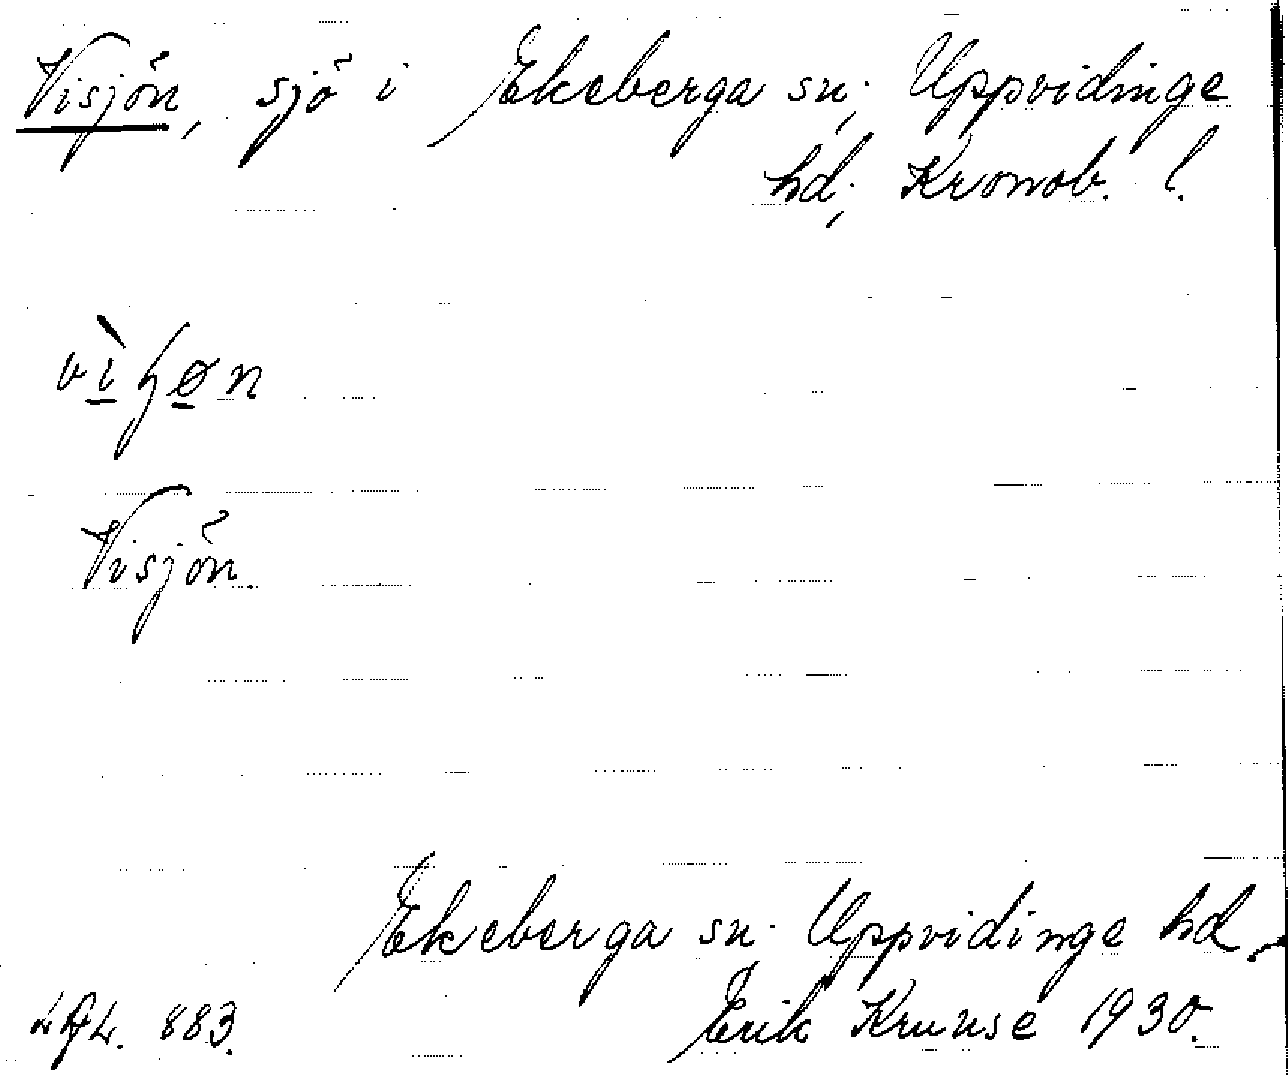 Visjön, sjö i Ekeberga sn; Uppvidinge
hd; Kronob. l.
Visjön.
Ekeberga sn. Uppvidinge hd.
883. Erik Kruuse 1930.